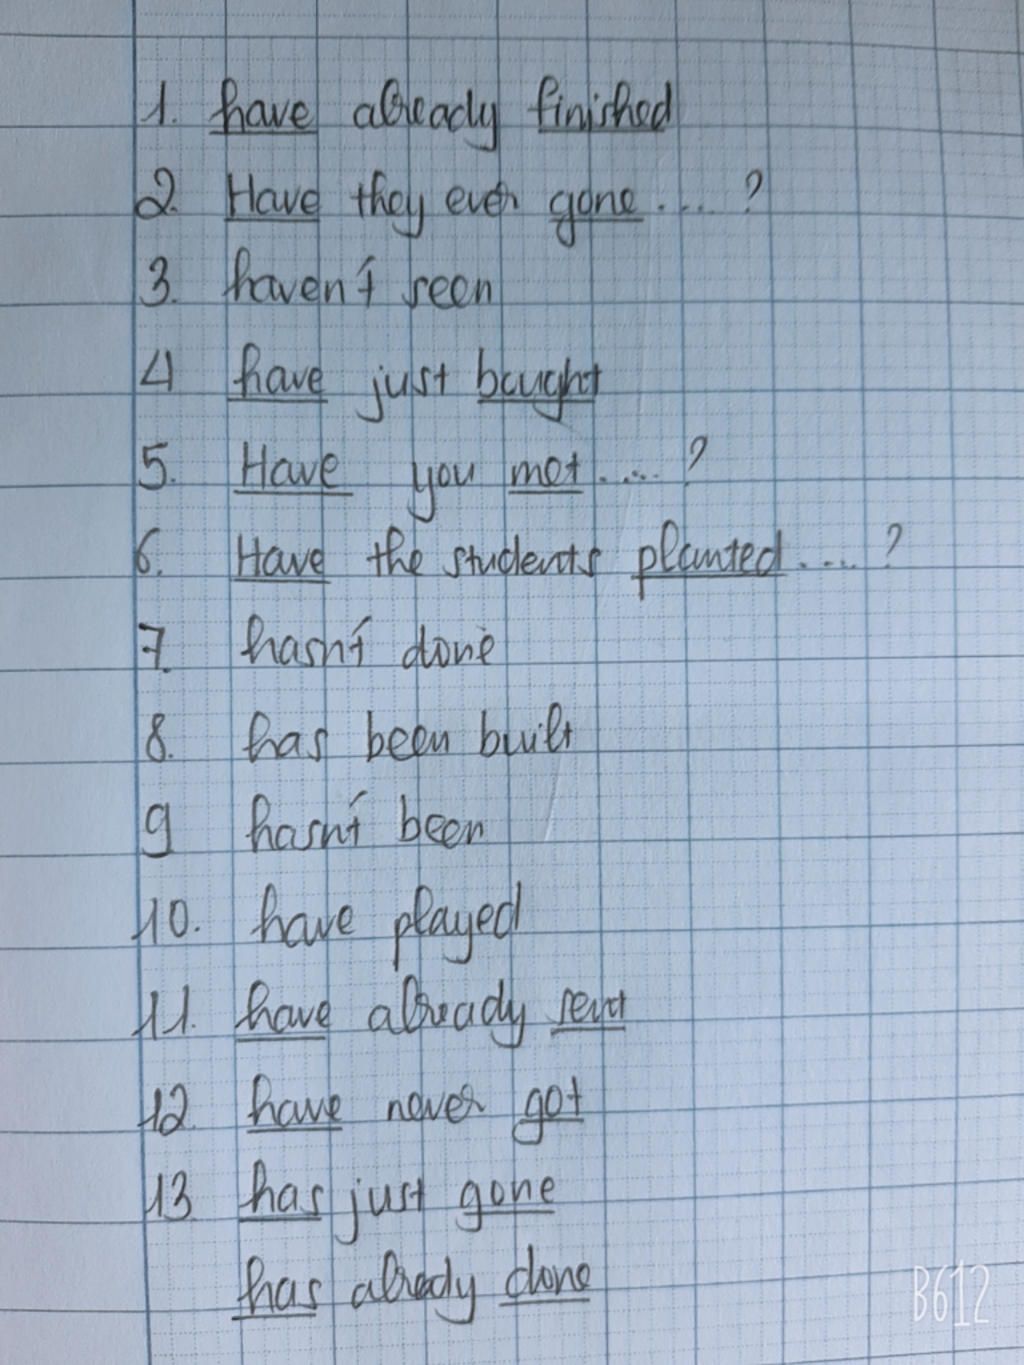 1. have already finished
2. Have they ever gone .... ?
3. haven't seen
4 have just bought
5. Have you met .... ?
6. Have the students planted .... ?
7. hasn't done
8. has been built
9 hasn't been
10. have played
11. have already sent
12. have never got
13. has just gone
has already done
B612